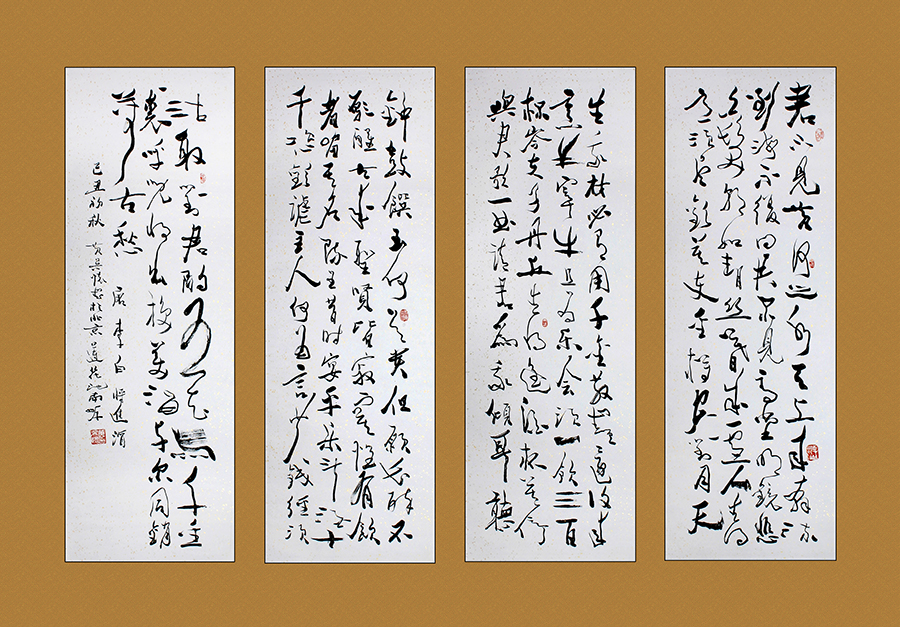 君不見黄河之水天上来奔流
到海不復回君不見高堂明鏡悲
白髮朝如青絲暮成雪人生得
意須盡歡莫使金樽空對月天
生我材必有用千金散盡還復来
烹羊宰牛且為樂會須一飲三百
杯岑夫子丹丘生將進酒杯莫停
與君歌一曲請君為我傾耳聽
鐘鼓饌玉何足貴但願長醉不
願醒古来聖賢皆寂寞惟有飲
者留其名陳王昔時宴平樂斗酒十
千恣歡謔主人何為言少錢徑須
沽取對君酌五花馬千金
裘呼兒將出換美酒與爾同銷
萬古愁
唐李白將進酒
己丑初秋 於北京蓮花池南畔